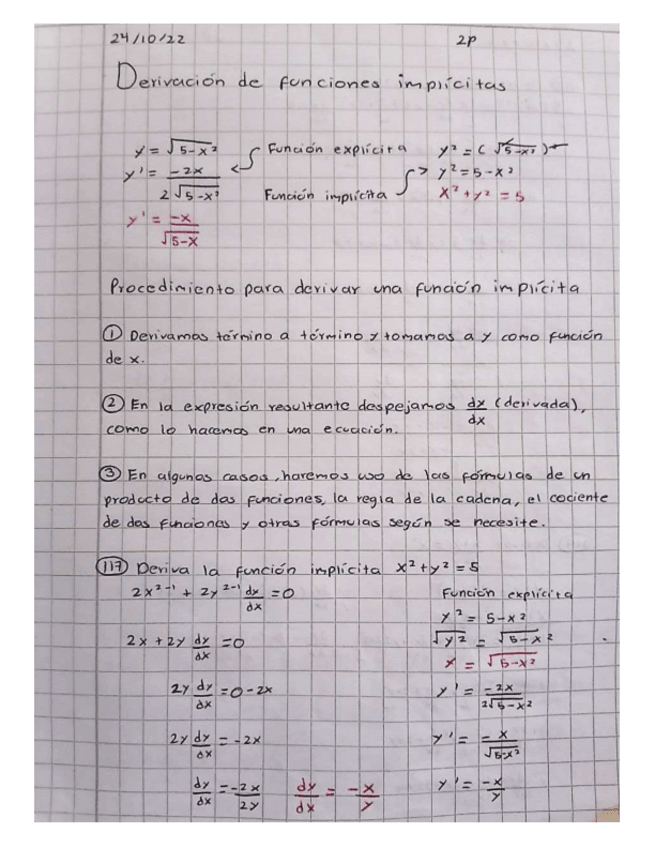 24/10/22 2P
Derivación de funciones implícitas
y = √5-x² Función explícita y² = (√5-x²)²
y' = -2x / 2√5-x² y² = 5-x²
Función implícita x² + y² = 5
y' = -x / √5-x
Procedimiento para derivar una función implícita
① Derivamos término a término y tomamos a y como función
de x.
② En la expresión resultante despejamos dx/dx (derivada),
como lo hacemos en una ecuación.
③ En algunos casos, haremos uso de las fórmulas de un
producto de dos funciones, la regla de la cadena, el cociente
de dos funciones y otras fórmulas según se necesite.
117 Deriva la función implícita x² + y² = 5
2x²⁻¹ + 2y²⁻¹ dy/dx = 0 Función explícita
y² = 5-x²
2x + 2y dy/dx = 0 √y² = √5-x²
y = √5-x²
2y dy/dx = 0 - 2x y' = -2x / 2√5-x²
2y dy/dx = -2x y' = -x / √5-x²
dy/dx = -2x/2y dy/dx = -x/y y' = -x/y